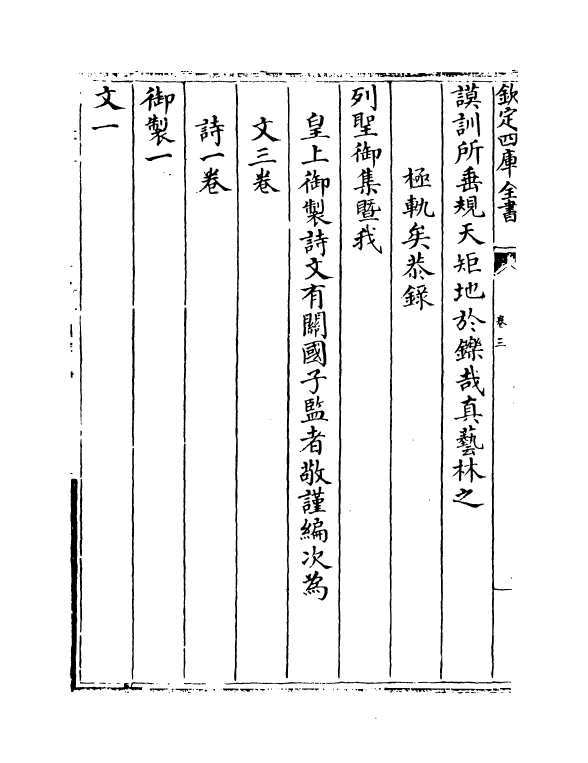 欽定四庫全書
卷三
謨訓所垂規天矩地於鑠哉真藝林之
極軌矣恭錄
列聖御集暨我
皇上御製詩文有關國子監者敬謹編次為
文三卷
詩一卷
御製一
文一